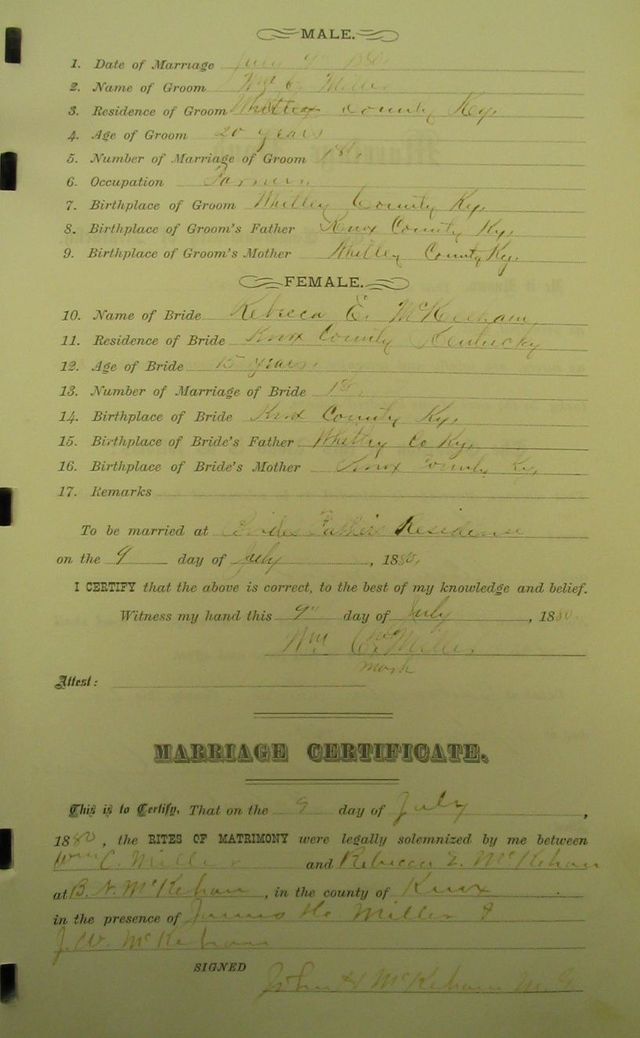 MALE.
1. Date of Marriage July 9" 1880
2. Name of Groom Wm C. Miller
3. Residence of Groom Whitley County Ky.
4. Age of Groom 20 years
5. Number of Marriage of Groom 1st.
6. Occupation Farmer.
7. Birthplace of Groom Whitley County Ky.
8. Birthplace of Groom's Father Knox County Ky.
9. Birthplace of Groom's Mother Whitley County Ky.
FEMALE.
10. Name of Bride Rebecca E. McKeeham
11. Residence of Bride Knox County Kentucky
12. Age of Bride 15 years.
13. Number of Marriage of Bride 1st.
14. Birthplace of Bride Knox County Ky.
15. Birthplace of Bride's Father Whitley Co Ky.
16. Birthplace of Bride's Mother Knox County Ky.
17. Remarks
To be married at Brides Father's Residence
on the 9 day of July, 1880.
I CERTIFY that the above is correct, to the best of my knowledge and belief.
Witness my hand this 9" day of July, 1880.
Wm C. Miller
mark
Attest:
MARRIAGE CERTIFICATE.
This is to Certify, That on the 9 day of July,
1880, the RITES OF MATRIMONY were legally solemnized by me between
Wm C. Miller and Rebecca E. McKehan
at B. N. McKehan, in the county of Knox
in the presence of Miller &
J. W. McKehan
SIGNED
John McKehan M. G.